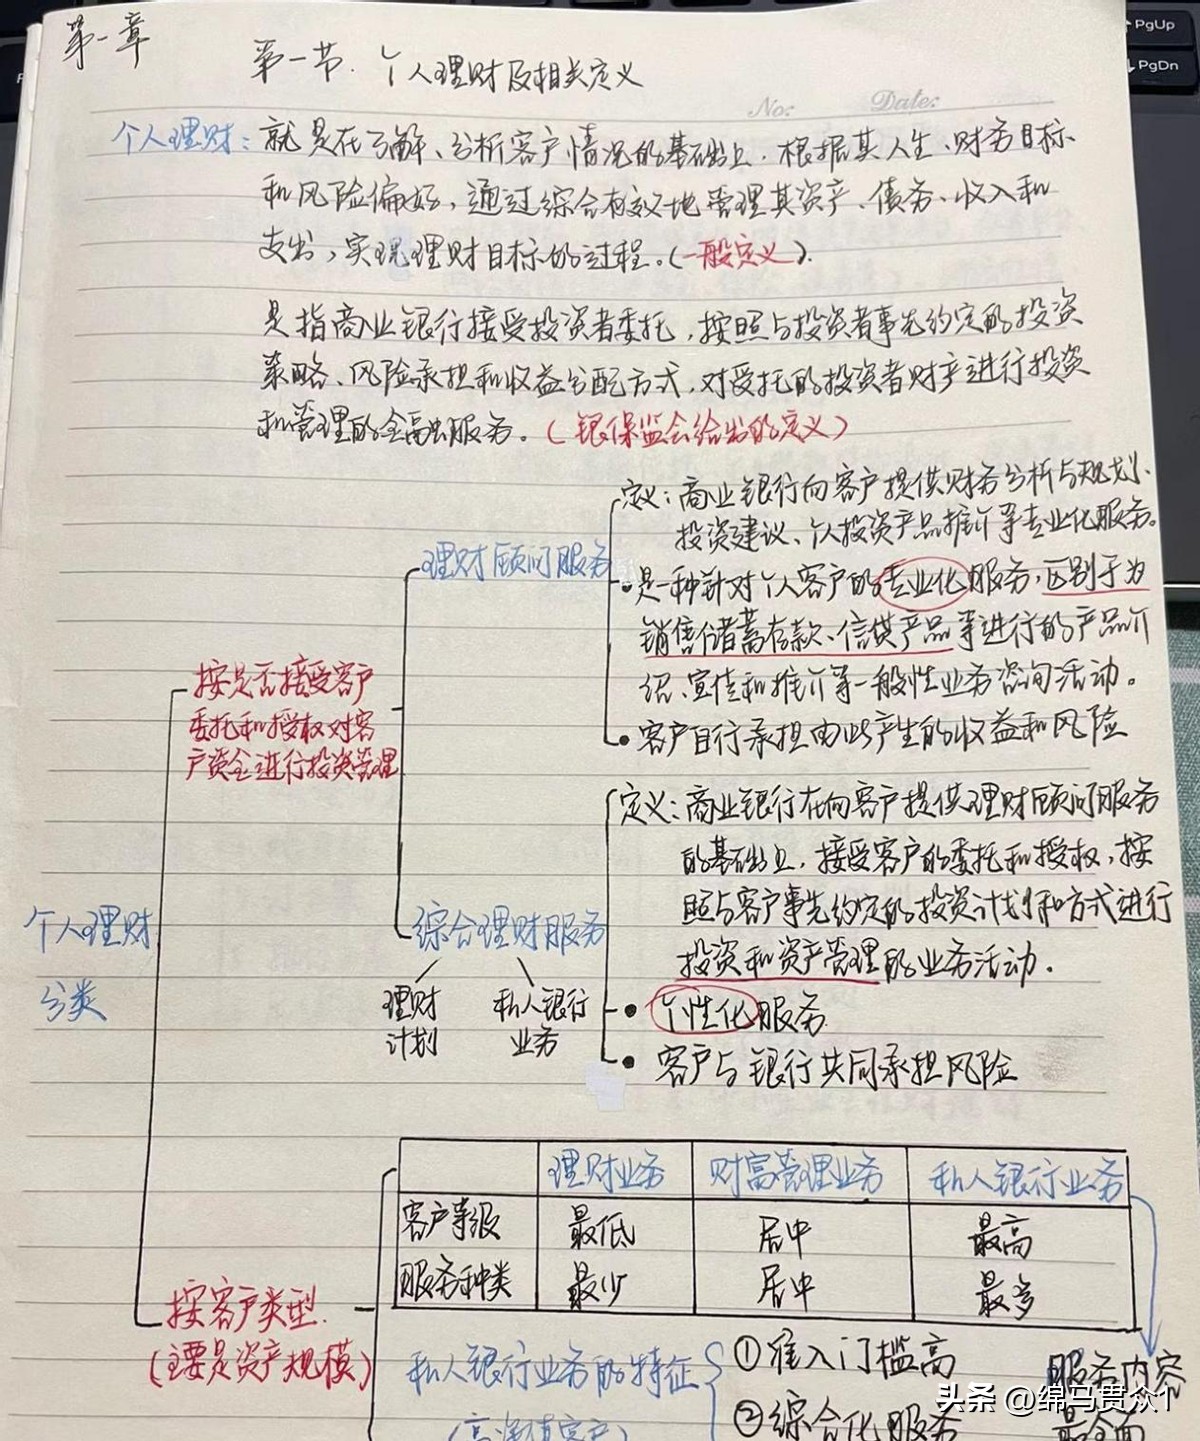 PgUp
PgDn
第一章
第一节. 个人理财及相关定义
No:
Date:
个人理财: 就是在了解、分析客户情况的基础上, 根据其人生、财务目标
和风险偏好, 通过综合有效地管理其资产、债务、收入和
支出, 实现理财目标的过程。(一般定义).
是指商业银行接受投资者委托, 按照与投资者事先约定的投资
策略、风险承担和收益分配方式, 对受托的投资者财产进行投资
和管理的金融服务。(银保监会给出的定义)
定义: 商业银行向客户提供财务分析与规划、
投资建议、个人投资产品推介等专业化服务。
理财顾问服务
·是一种针对个人客户的专业化服务, 区别于为
销售储蓄存款、信贷产品等进行的产品介
绍、宣传和推介等一般性业务咨询活动。
·客户自行承担由此产生的收益和风险
按是否接受客户
委托和授权对客
户资金进行投资管理
定义: 商业银行在向客户提供理财顾问服务
的基础上, 接受客户的委托和授权, 按
照与客户事先约定的投资计划和方式进行
投资和资产管理的业务活动.
综合理财服务
理财
计划
私人银行
业务
· 个性化服务
· 客户与银行共同承担风险
个人理财
分类
理财业务 财富管理业务 私人银行业务
客户等级 最低 居中 最高
服务种类 最少 居中 最多
按客户类型.
(主要是资产规模)
私人银行业务的特征
(高净值客户)
①准入门槛高
②综合化服务
服务内容
最全面
头条 @绵马贯众1